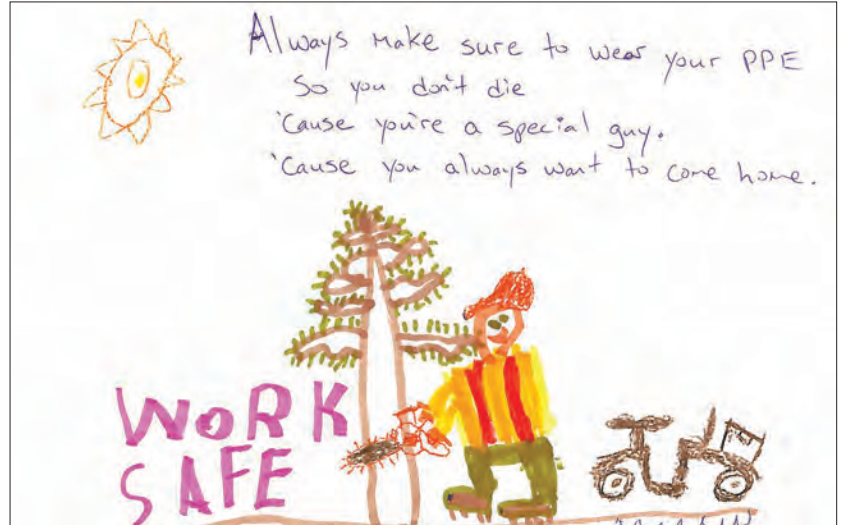 Always make sure to wear your PPE
So you don't die
'Cause you're a special guy.
'Cause you always want to come home.
WORK
SAFE